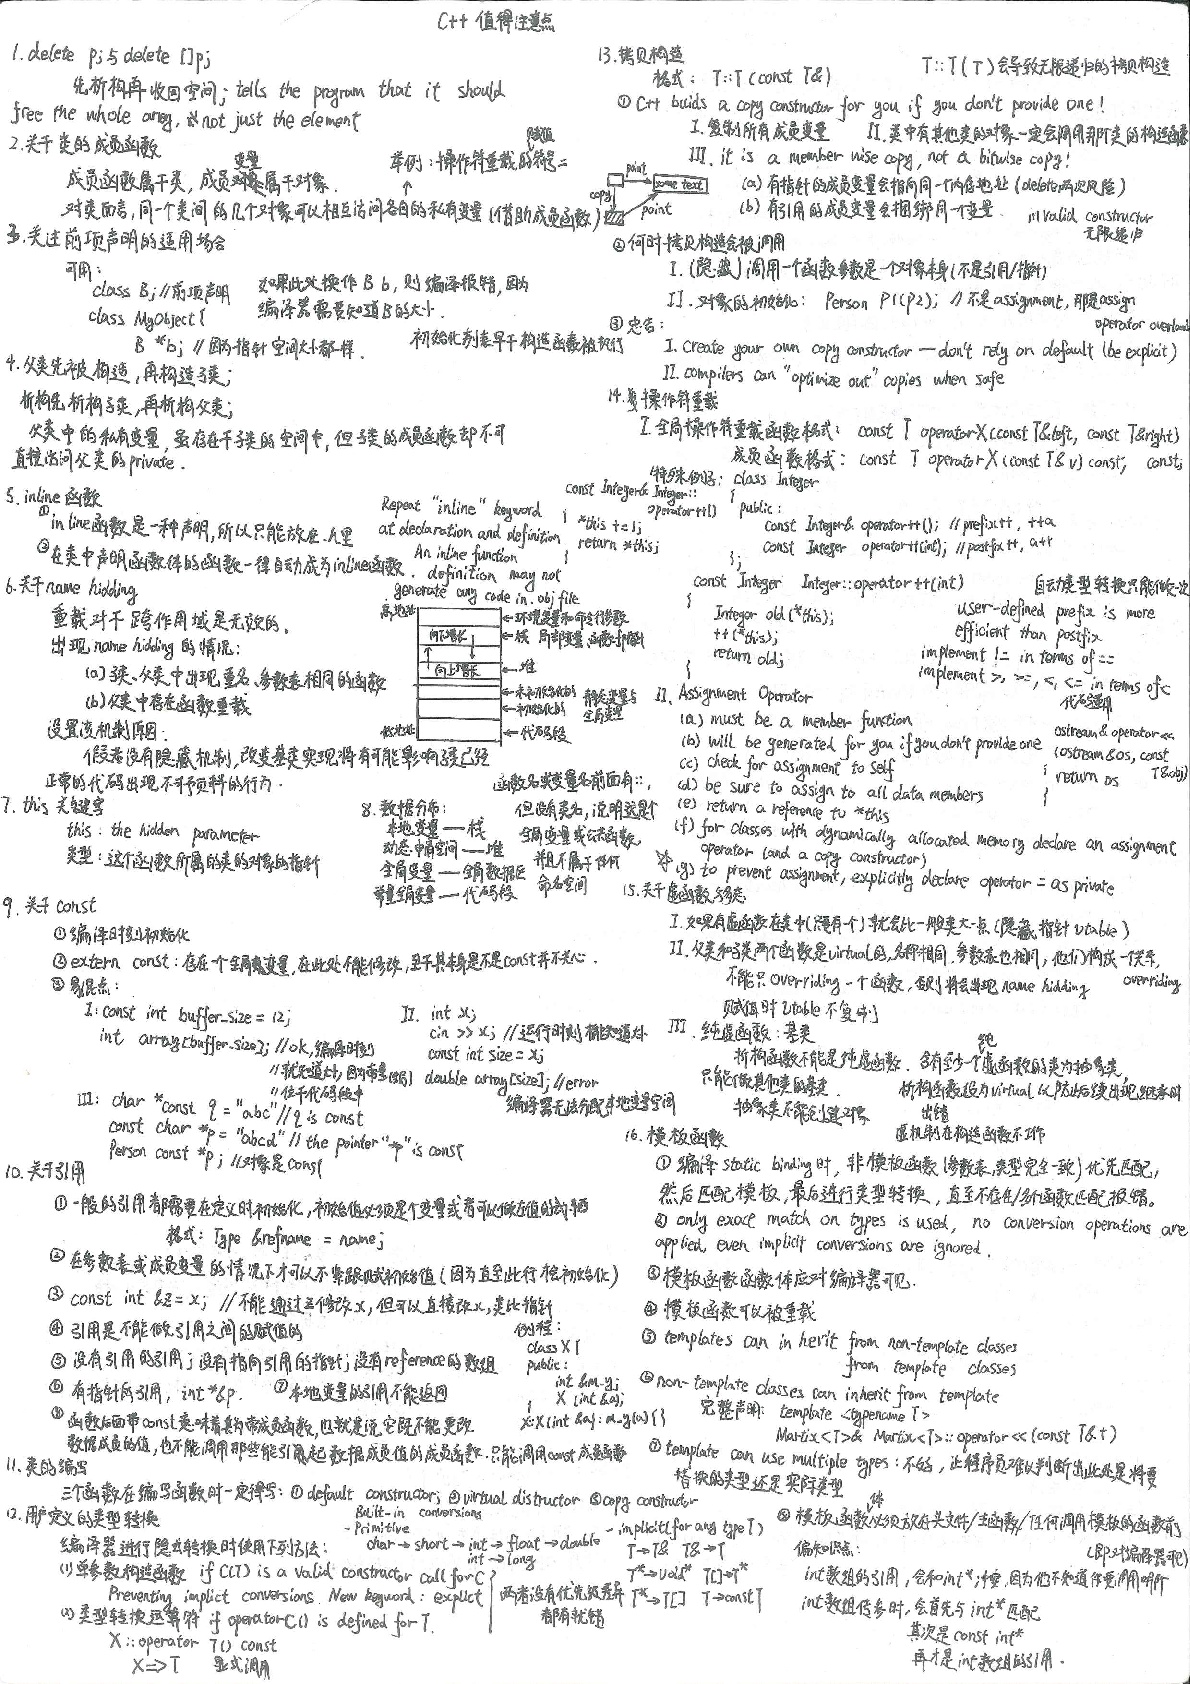 C++ 值得注意点
1. delete p; 与 delete []p;
先析构再收回空间; tells the program that it should
free the whole array, not just the element
2. 关于类的成员函数
成员函数属于类, 成员变量属于对象.
举例: 操作符重载的赋值符号=
对类而言, 同一个类间的几个对象可以相互访问各自的私有变量 (借助成员函数)
3. 关于前项声明的适用场合
可用:
class B; // 前项声明
class MyObject{
B *b; // 因为指针空间大小都一样.
如果此处换作 B b, 则编译报错, 因为
编译器需要知道B的大小.
初始化列表早于构造函数被执行
4. 父类先被构造, 再构造子类;
析构先析构子类, 再析构父类;
父类中的私有变量, 虽存在于子类的空间中, 但子类的成员函数却不可
直接访问父类的private.
5. inline 函数
① inline函数是一种声明, 所以只能放在.h里
② 在类中声明函数体的函数一律自动成为inline函数.
Repeat "inline" keyword
at declaration and definition
An inline function
definition may not
generate any code in .obj file
6. 关于name hidding
重载对于跨作用域是无效的.
出现name hiding 的情况:
(a) 子类、父类中出现重名、参数表相同的函数
(b) 父类中存在函数重载
设置该机制原因.
假若没有隐藏机制, 改变基类实现将有可能影响子类已经
正常的代码出现不可预料的行为.
高地址
←环境变量和命令行参数
←栈 局部变量、函数
向下增长
向上增长
←堆
←未初始化的
←初始化的
静态变量与
全局变量
低地址
←代码段
7. this 关键字
this: the hidden parameter
类型: 这个函数所属的类的对象的指针
8. 数据分布:
本地变量——栈
动态申请空间——堆
全局变量——全局数据区
常量全局变量——代码段
函数名或变量名前面有::,
但没有类名, 说明这是个
全局变量或全局函数,
并且不属于任何
命名空间
9. 关于 const
① 编译时刻初始化
② extern const: 存在一个全局变量, 在此处不能修改, 至于其本身是不是const并不关心.
③ 易混点:
I: const int buffer_size = 12;
int array[buffer_size]; // ok, 编译时刻
// 就知道大小, 因为常量
// 位于代码段中
II. int x;
cin >> x; // 运行时刻才能知道大小
const int size = x;
double array[size]; // error
编译器无法分配本地变量空间
III: char *const q = "abc" // q is const
const char *p = "abcd" // the pointer "*p" is const
Person const *p; // 对象是const
10. 关于引用
① 一般的引用都需要在定义时初始化, 初始值必须是个变量或者可以做左值的东西
格式: Type &refname = name;
② 在参数表或成员变量的情况下才可以不紧跟赋初始值 (因为直至此行才会初始化)
③ const int &z = x; // 不能通过z修改x, 但可以直接改x, 类比指针
④ 引用是不能做引用之间的赋值的
⑤ 没有引用的引用; 没有指向引用的指针; 没有reference的数组
⑥ 有指针的引用, int *&p. ⑦ 本地变量的引用不能返回
⑧ 函数后面带const意味着其为常成员函数, 也就是说它既不能更改
数据成员的值, 也不能调用那些能引起数据成员值的成员函数. 只能调用const成员函数
例程:
class X {
public:
int &m_y;
X (int &a);
}
X::X(int &a): m_y(a) {}
11. 类的编写
三个函数在编写函数时一定得写: ① default constructor; ② virtual distructor ③ copy constructor
12. 用户定义的类型转换
编译器进行隐式转换时使用下列方法:
(1) 单参数构造函数 if C(T) is a valid constructor call for C
Preventing implict conversions. New keyword: explict
(2) 类型转换运算符 if operator C() is defined for T.
X::operator T() const
X=>T 显式调用
两者没有优先级差异
都有就错
Built-in conversions
- Primitive
char→short→int→float→double
int→long
- implicit (for any type T)
T→T& T&→T
T*→void* T[]→T*
T*→T[] T→const T
13. 拷贝构造
格式: T::T(const T&)
T::T(T) 会导致无限递归的拷贝构造
① C++ buids a copy constructor for you if you don't provide one!
I. 复制所有成员变量 II. 类中有其他类的对象一定会调用那个类的构造函数
III. it is a member wise copy, not a bitwise copy!
point
some text
copy
point
(a) 有指针的成员变量会指向同一个内存地址 (delete两次风险)
(b) 有引用的成员变量会捆绑同一个变量.
valid constructor
无限递归
② 何时拷贝构造会被调用
I. (隐藏) 调用一个函数参数是一个对象本身 (不是引用/指针)
II. 对象的初始化: Person P1(P2); // 不是assignment, 那是assign
operator overload
③ 忠告:
I. Create your own copy constructor — don't rely on default (be explicit)
II. compilers can "optimize out" copies when safe
14. 操作符重载
I. 全局操作符重载函数格式: const T operatorX(const T& left, const T& right)
成员函数格式: const T operatorX (const T& v) const;
特殊例子: class Integer
{
public:
const Integer& operator++(); // prefix++, ++a
const Integer operator++(int); // postfix++, a++
};
const Integer& Integer::
operator++()
{
*this += 1;
return *this;
}
const Integer Integer::operator++(int)
{
Integer old (*this);
++(*this);
return old;
}
自动类型转换只能做一次
user-defined prefix is more
efficient than postfix
implement != in terms of ==
implement >, >=, <, <= in terms of <
代码重用
II. Assignment Operator
(a) must be a member function
(b) will be generated for you if you don't provide one
(c) check for assignment to self
(d) be sure to assign to all data members
(e) return a reference to *this
(f) for classes with dynamically allocated memory declare an assignment
operator (and a copy constructor)
(g) to prevent assignment, explicitly declare operator = as private
ostream& operator <<
(ostream& os, const
T& obj)
{
return os
}
15. 关于虚函数与多态
I. 如果有虚函数在类中 (只要有一个) 就会比一般类大一点 (隐藏指针 vtable)
II. 父类和子类两个函数是virtual的, 名称相同, 参数表也相同, 他们构成一个关系,
overriding
不能只overriding一个函数, 否则将会出现 name hidding
赋值时 vtable 不复制
III. 纯虚函数: 基类
析构函数不能是纯虚函数. 含有至少一个纯虚函数的类为抽象类,
只能做其他类的基类.
抽象类不能创建对象
析构函数设为virtual 以防止后续出现继承时
出错
虚机制在构造函数不工作
16. 模板函数
① 编译 static binding时, 非模板函数 (参数表、类型完全一致) 优先匹配,
然后匹配模板, 最后进行类型转换, 直至不存在/多个函数匹配报错。
② only exact match on types is used, no conversion operations are
applied, even implicit conversions are ignored.
③ 模板函数函数体应对编译器可见.
④ 模板函数可以被重载
⑤ templates can in herit from non-template classes
from template classes
⑥ non-template classes can inherit from template
完整声明: template <typename T>
Martix<T>& Martix<T>::operator << (const T& t)
⑦ template can use multiple types: 不好, 让程序员难以判断出此处是将要
替换的类型还是实际类型
⑧ 模板函数体必须放在头文件/主函数/任何调用模板的函数前
(即对编译器可见)
偏知识点:
int数组的引用, 会和int*冲突, 因为他们不知道你要调用哪个
int数组传参时, 会首先与 int* 匹配
其次是 const int*
再才是 int数组的引用.